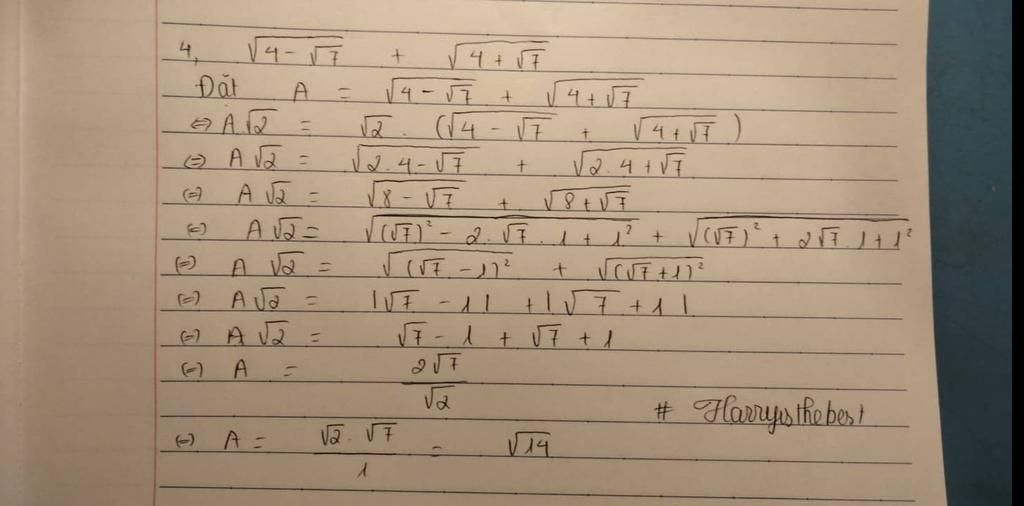 4, √(4 - √7) + √(4 + √7)
Đặt A = √(4 - √7) + √(4 + √7)
⇔ A√2 = √2 . (√(4 - √7) + √(4 + √7))
(=) A√2 = √(2.4 - √7) + √(2.4 + √7)
(=) A√2 = √(8 - √7) + √(8 + √7)
(=) A√2 = √((√7)² - 2.√7.1 + 1²) + √((√7)² + 2√7.1 + 1²)
(=) A√2 = √((√7 - 1)²) + √((√7 + 1)²)
(=) A√2 = |√7 - 1| + |√7 + 1|
(=) A√2 = √7 - 1 + √7 + 1
(=) A = 2√7 / √2
# Harryisthebest
(=) A = √2 . √7 / 1 = √14